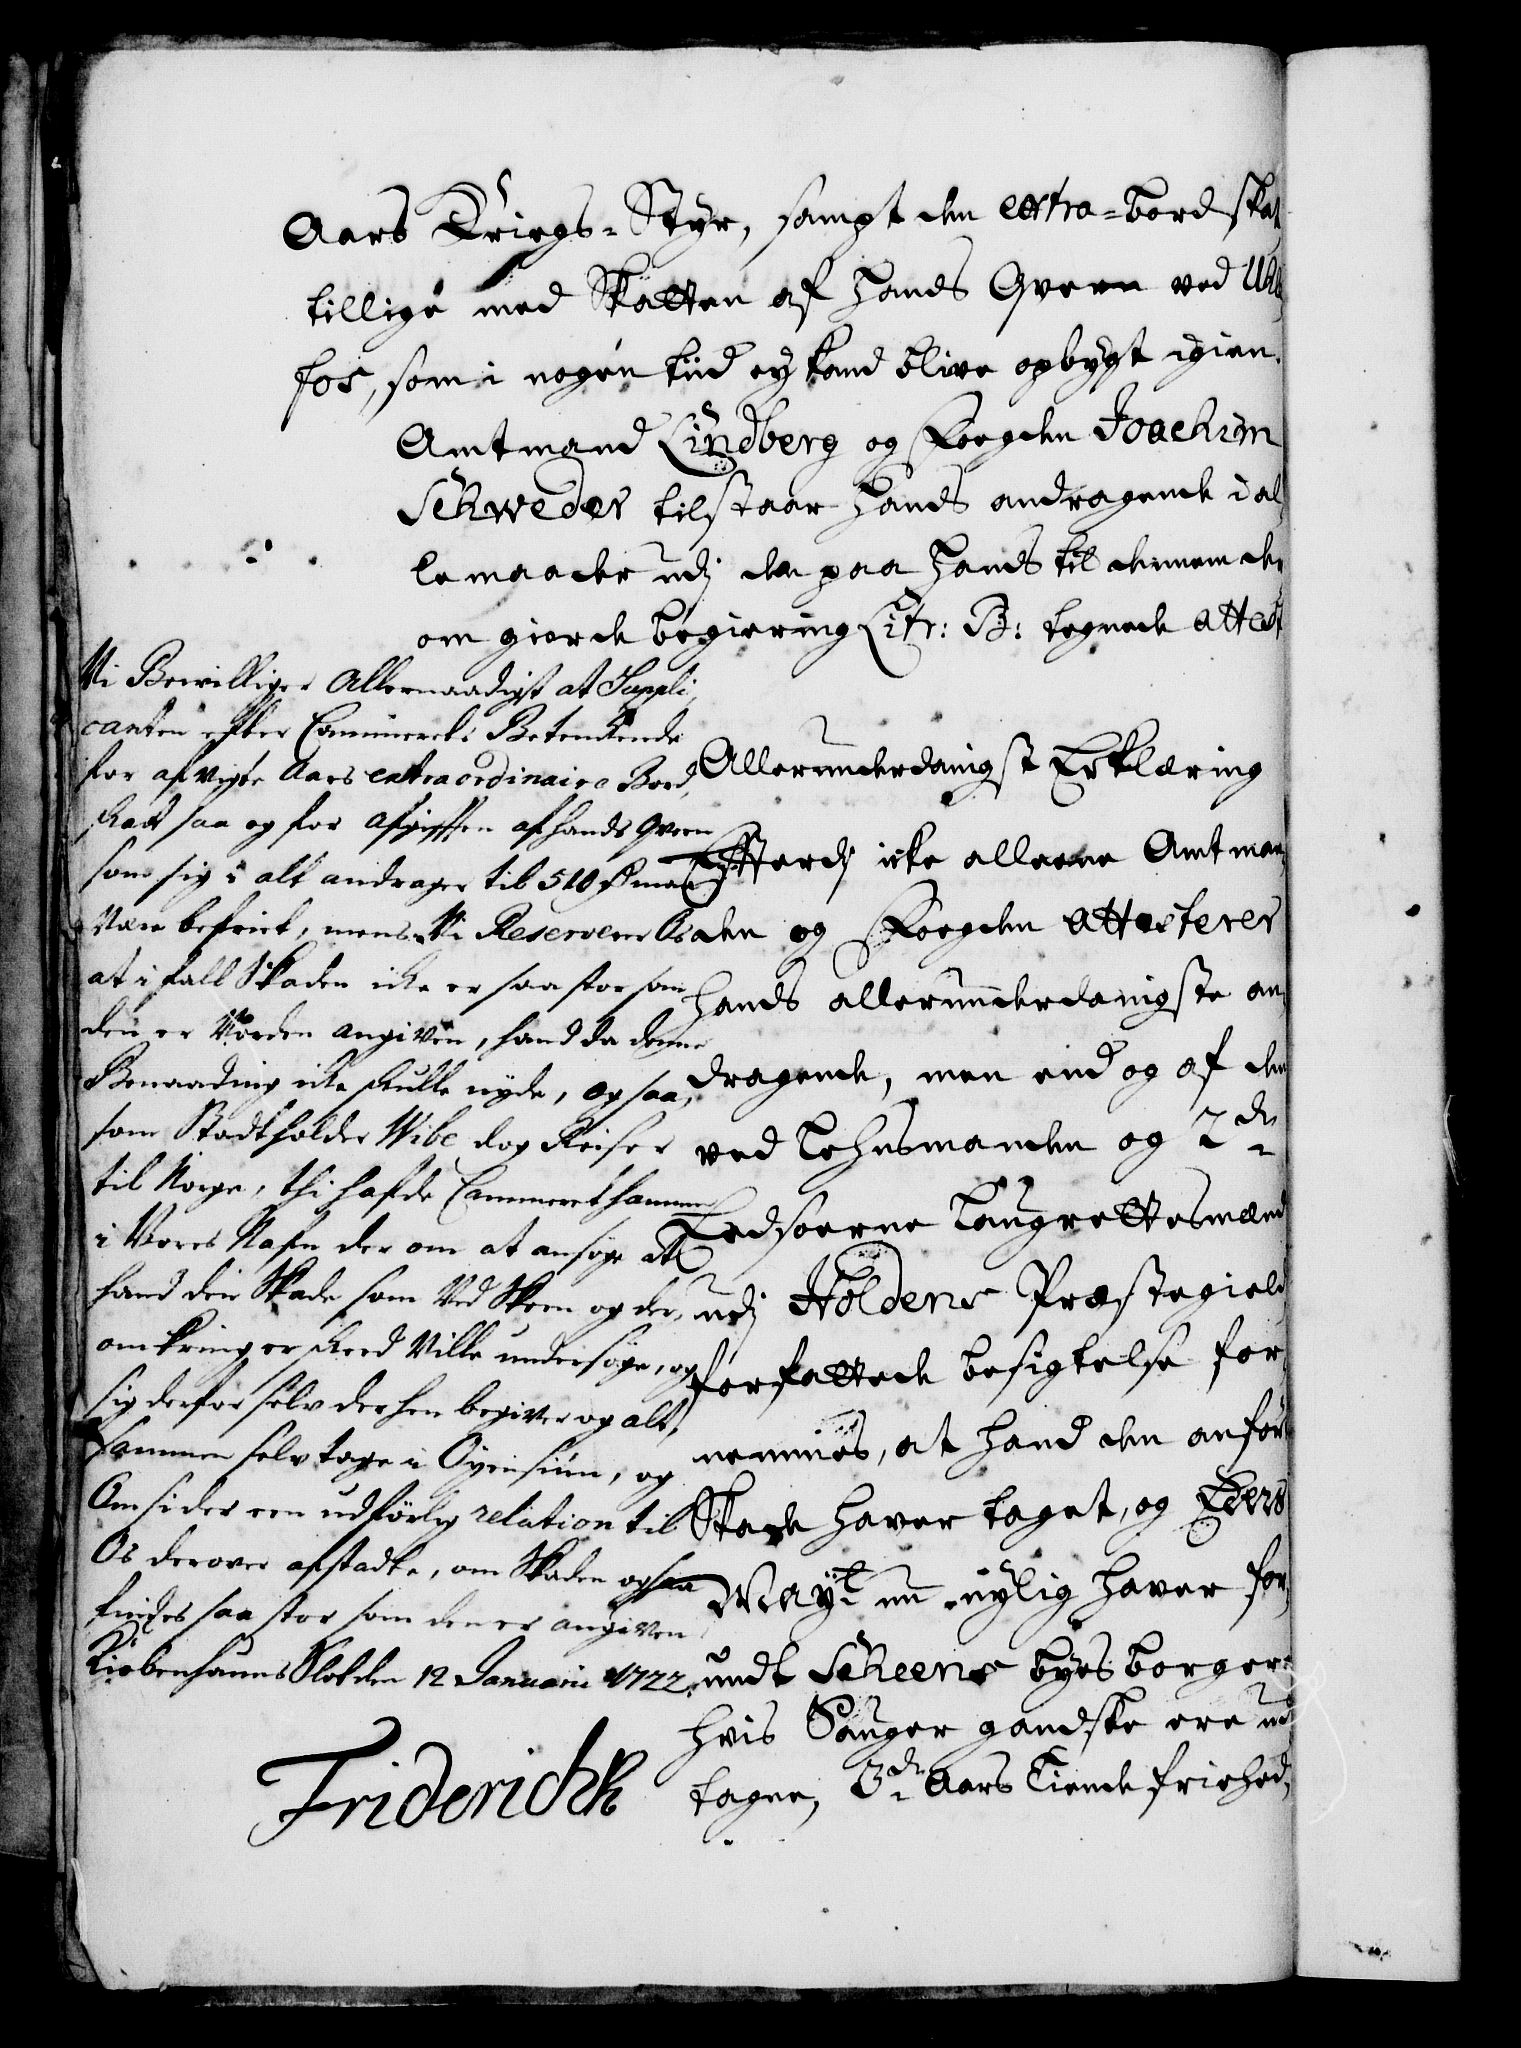 Aars Kriegs-Styr, sampt den extra-bord skat
tillige med Skatten af hands Qvern ved
fos, som i nogen tiid ey kand blive opbygt igien.
Amtmand Lindberg og Foegden Joachim
Schweder tilstaar hands andragende i al
le maader udj den paa hands til dennem der
om giorde begiering Litr: B: tegnede attest
Allerunderdanigst Erklæring
Efterdj icke alleene Amtman
den og Foegden attesterer
hands allerunderdanigste an
dragende, men end og af den
ved Lehnsmanden og 2de
Eedsoerne Laugrettesmænd
udj Holdens Præstegield
forfattede besigtelse for
nemmes, at hand den anfør
Skade haver taget, og Eders
Mayt nu nylig haver for
undt Scheens byes borgere
hvis Sauger gandske ere ud
tagne, 3de Aars Tiende friehed,
Vi Bewilliger Allernaadigst at Suppli,
canten efter Commercets Betenkende
for afvigte Aars extraordinaire Bord,
skat saa og for Afgifften af hands Qvern
som sig i alt andrager til 510 Rd maa
være befriet, mens Vi Reserverer Os
at i fald Skaden icke er saa stor som
den er vorden angiven, hand da denne
Benaading icke skulle nyde, og saa,
som Stadtholder Wibe dog Reiser
til Norge, thi hafde Cammeret hannem
i Vores Nafn der om at ansøge at
hand den Skade som Ved Skeen og der,
omkring er skeed ville undersøge, og
sig derfor selv derhen begiver og alt,
sammen selv tage i Øyensiun, og
Omsider een udførlig relation til
Os derover afstadte, om Skaden ogsaa
findes saa stor som den er angiven
Kiøbenhauns Slot den 12 Januarii 1722.
Friderich R